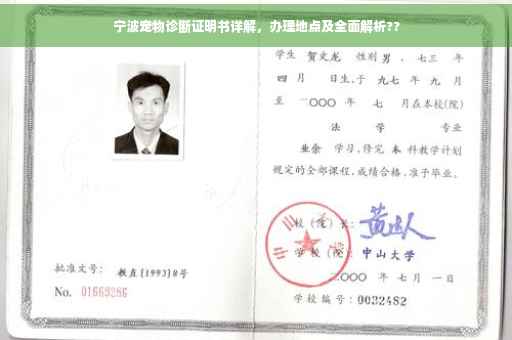 宁波宠物诊断证明书详解，办理地点及全面解析??
学生 贺文龙 性别 男 、七三 年
四 月 日生,于 九七 年 九 月
至 二〇〇〇 年 七 月在本校(院)
法 学 专业
业余 学习,修完 本 科教学计划
规定的全部课程,成绩合格,准予毕业。
校(院)长:
学校(院): 中山大学
二〇〇〇 年 七 月 一 日
批准文号: 教直[1993]8号
No. 01663286
学校编号: 0032482